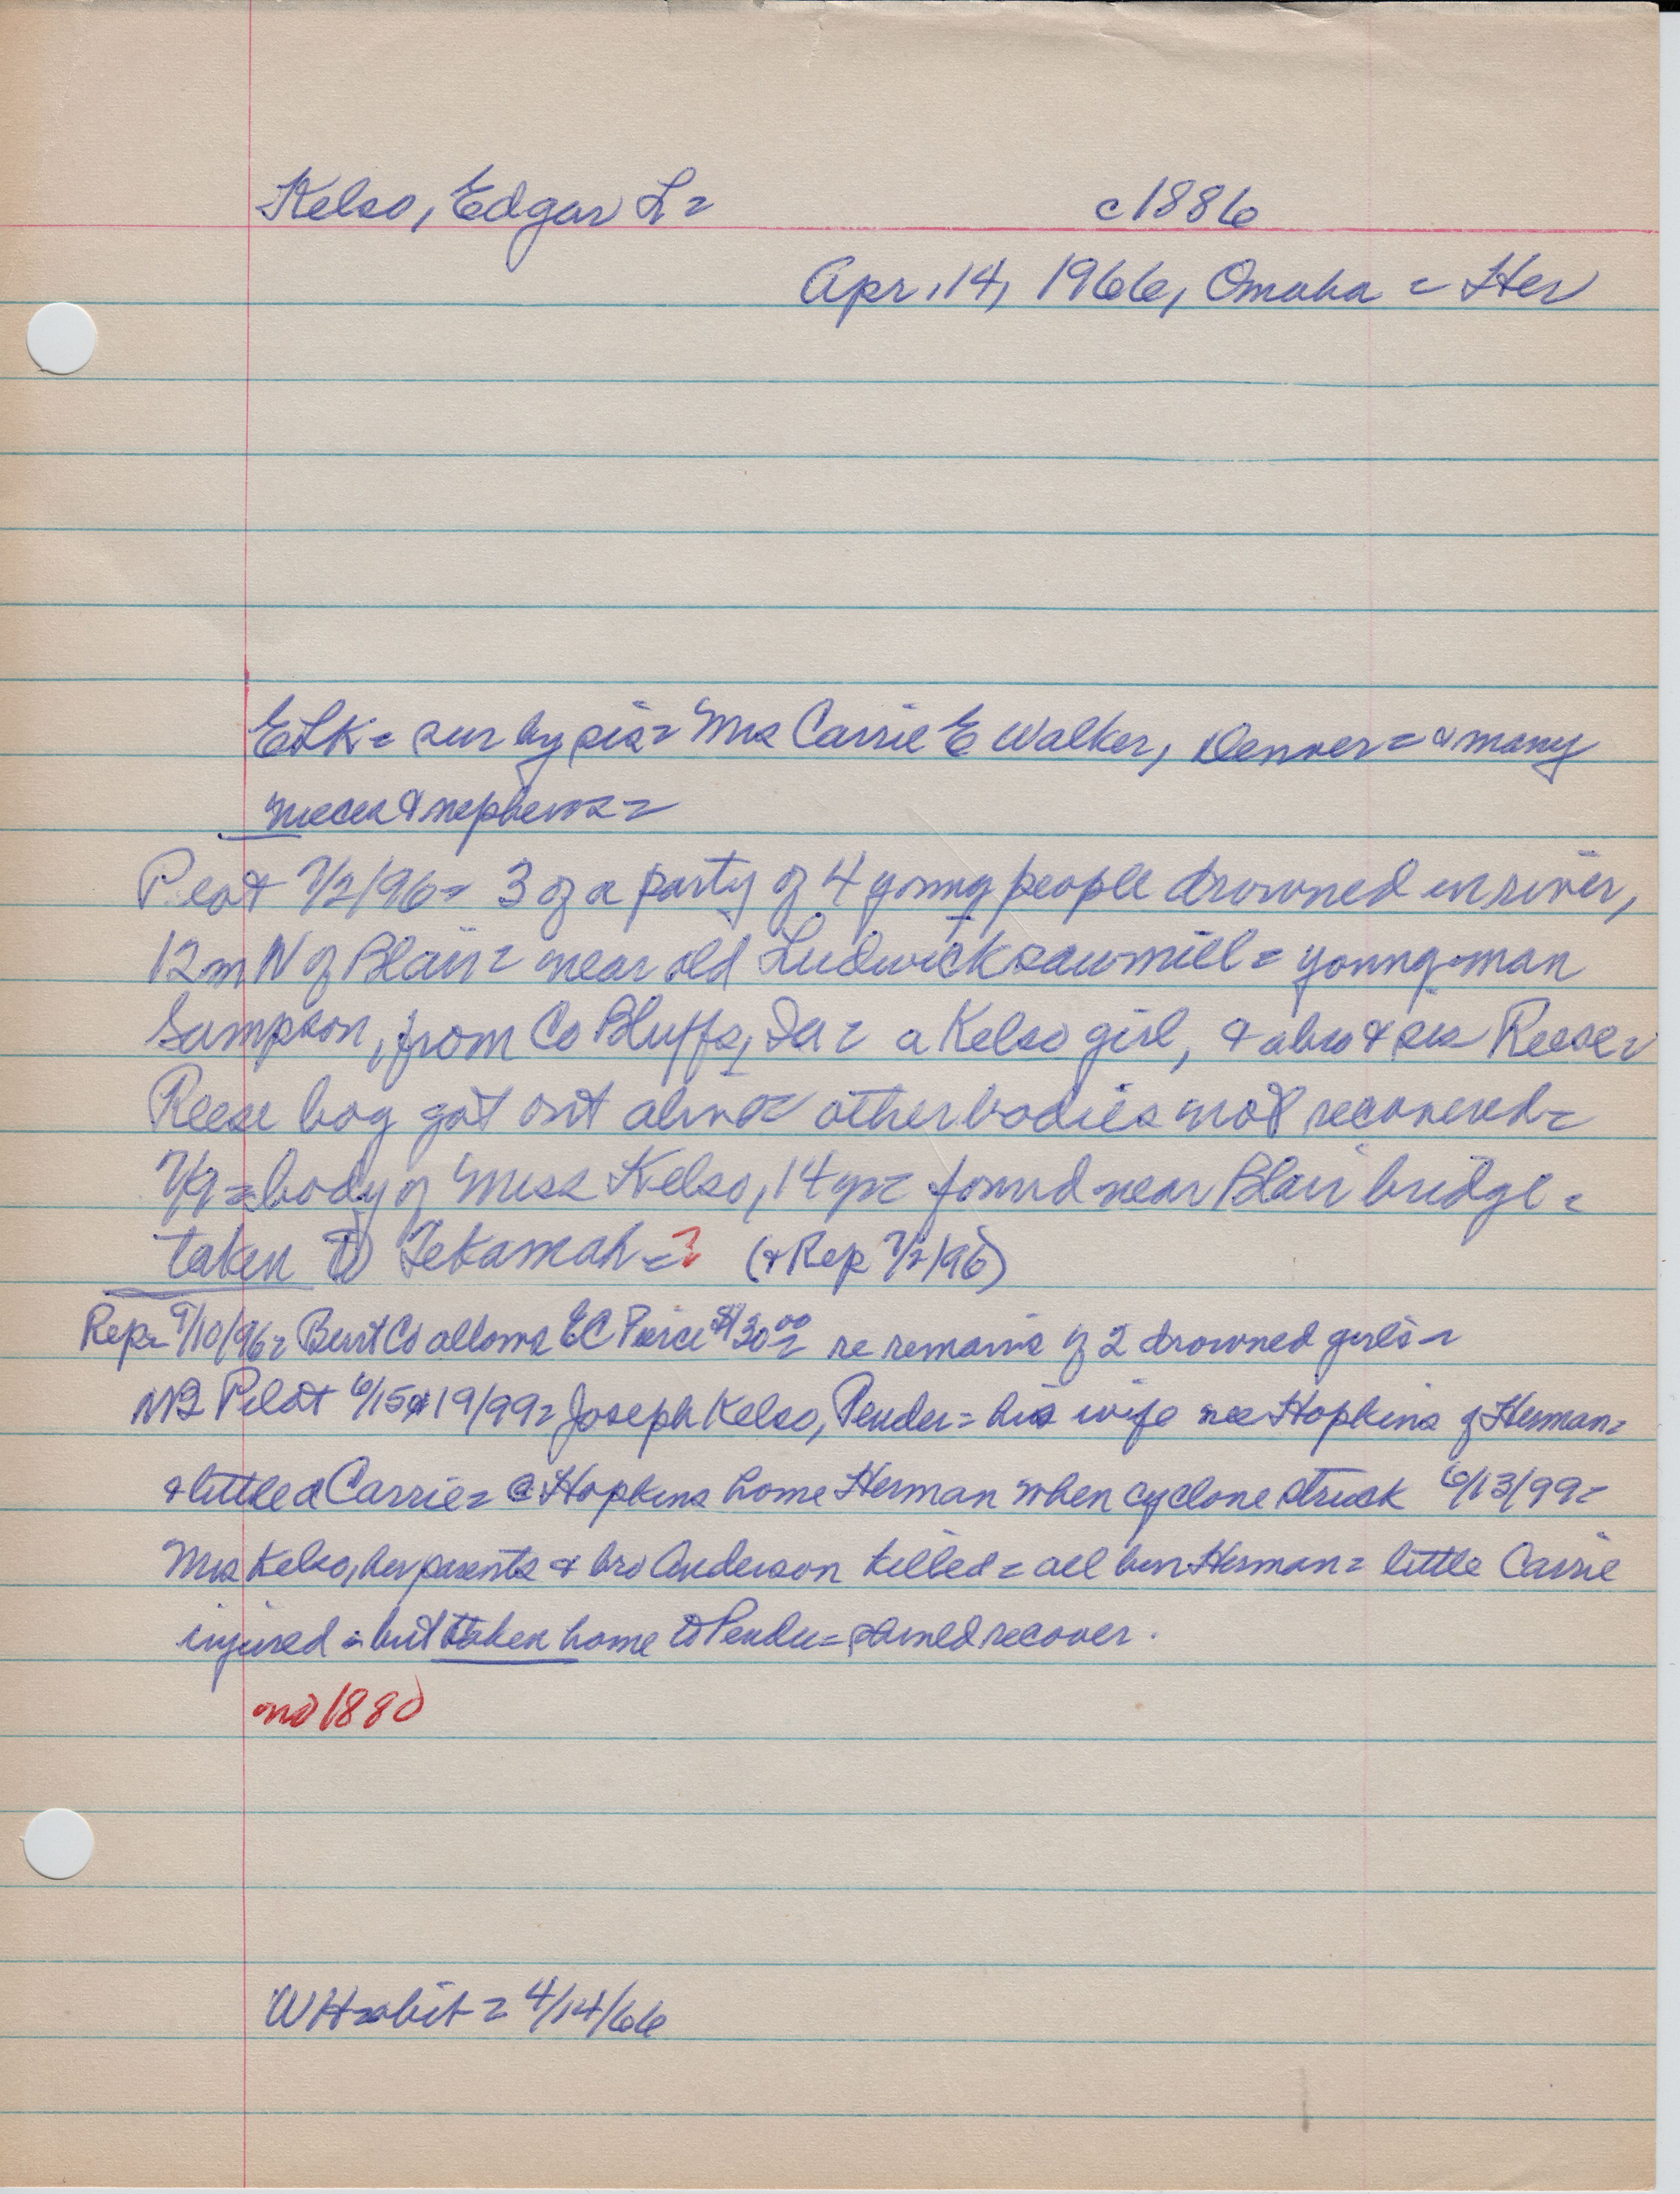 Kelso, Edgar L = c1886
Apr. 14, 1966, Omaha = Her
ELK = sur by sis = Mrs Carrie E Walker, Denver = & many
nieces & nephews =
Pilot 7/2/96 = 3 of a party of 4 young people drowned in river,
12 m N of Blair = near old Ludwick sawmill = young man
Sampson, from Co Bluffs, Ia = a Kelso girl, & a bro & sis Reese =
Reese boy got out alive = other bodies not recovered =
7/9 = body of Miss Kelso, 14 yr = found near Blair bridge =
taken to Tekamah = ? (& Rep 7/2/96)
Rep = 9/10/96 = Burt Co allows EC Pierce $130.00 = re remains of 2 drowned girls =
NB Pilot 6/15 & 19/99 = Joseph Kelso, Pender = his wife nee Hopkins of Herman =
& little d Carrie = @ Hopkins home Herman when cyclone struck 6/13/99 =
Mrs Kelso, her parents & bro Anderson killed = all bur Herman = little Carrie
injured = but taken home to Pender = recover.
no 1880
WH = obit = 4/14/66